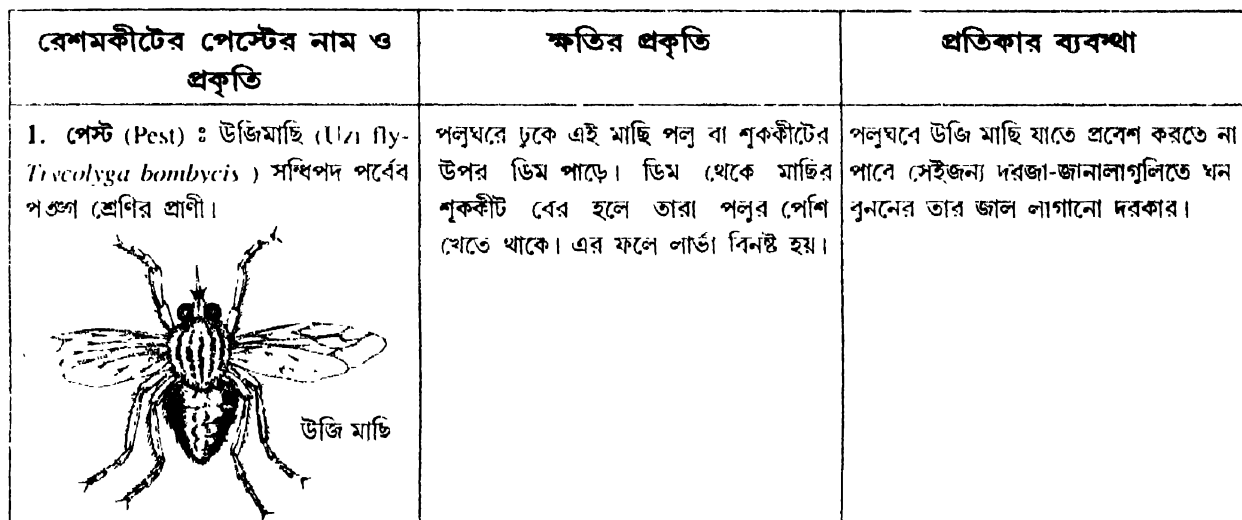 রেশমকীটের পেস্টের নাম ও
প্রকৃতি
ক্ষতির প্রকৃতি
প্রতিকার ব্যবস্থা
1. পেস্ট (Pest) : উজিমাছি (Uzi fly-
Tricolyga bombycis ) সন্ধিপদ পর্বের
পতঙ্গ শ্রেণির প্রাণী।
উজি মাছি
পলুঘরে ঢুকে এই মাছি পলু বা শূককীটের
উপর ডিম পাড়ে। ডিম থেকে মাছির
শূককীট বের হলে তারা পলুর পেশি
খেতে থাকে। এর ফলে লার্ভা বিনষ্ট হয়।
পলুঘরে উজি মাছি যাতে প্রবেশ করতে না
পারে সেইজন্য দরজা-জানালাগুলিতে ঘন
বুননের তার জাল লাগানো দরকার।